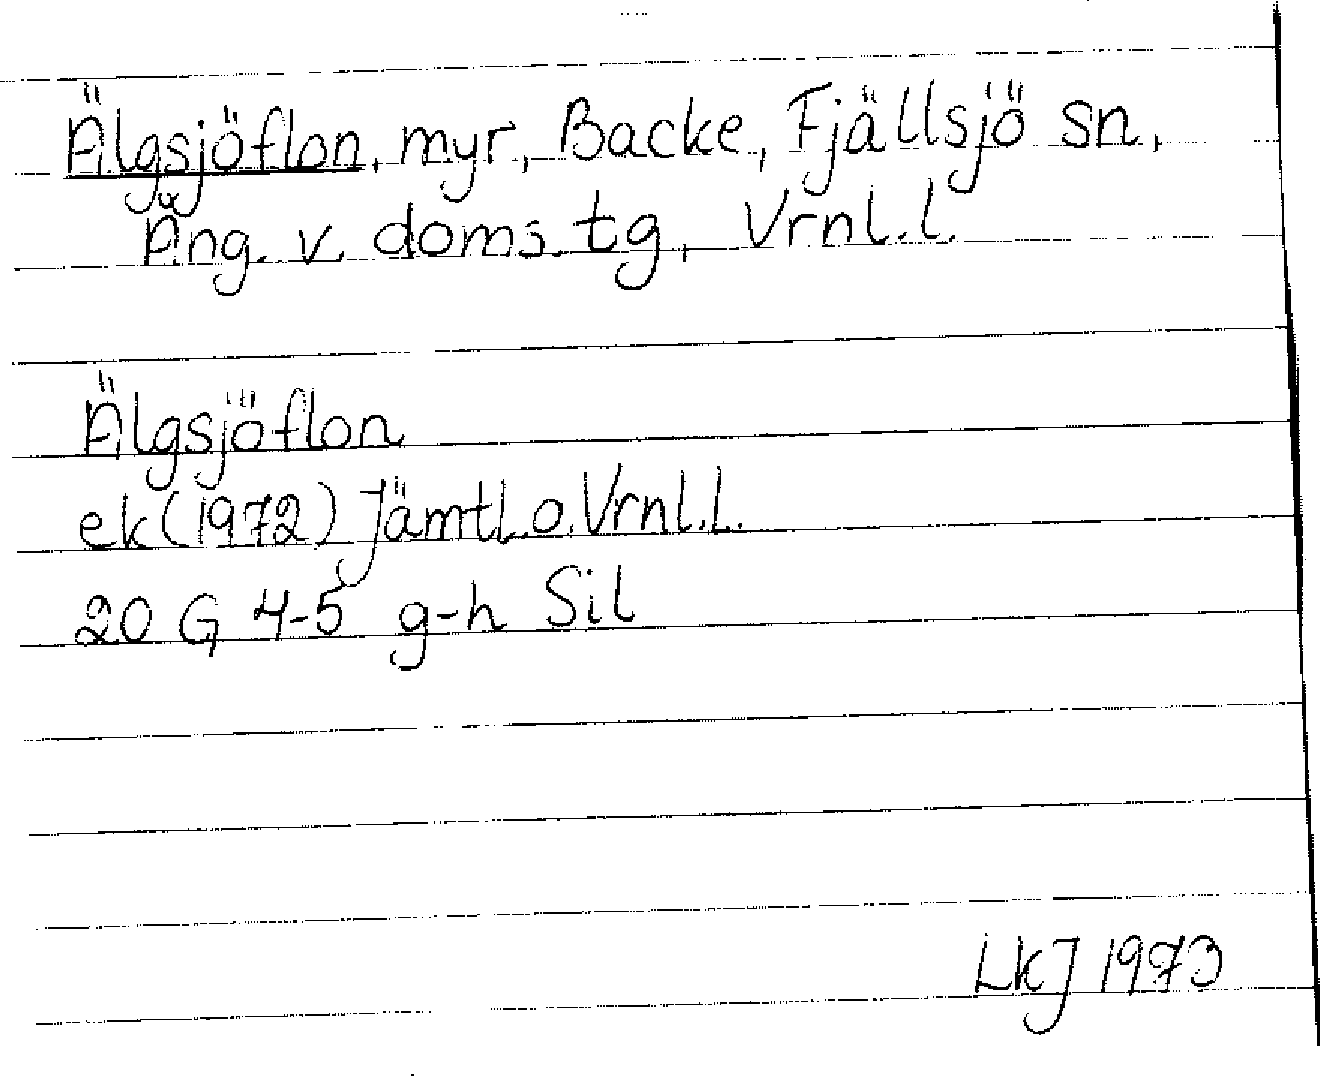 Älgsjöflon, myr, Backe, Fjällsjö sn,
Ång. v. doms. tg, Vrnl. l.
Älgsjöflon
ek (1972) Jämtl. o. Vrnl. L.
20 G 4-5 g-h Sil
LKJ 1973